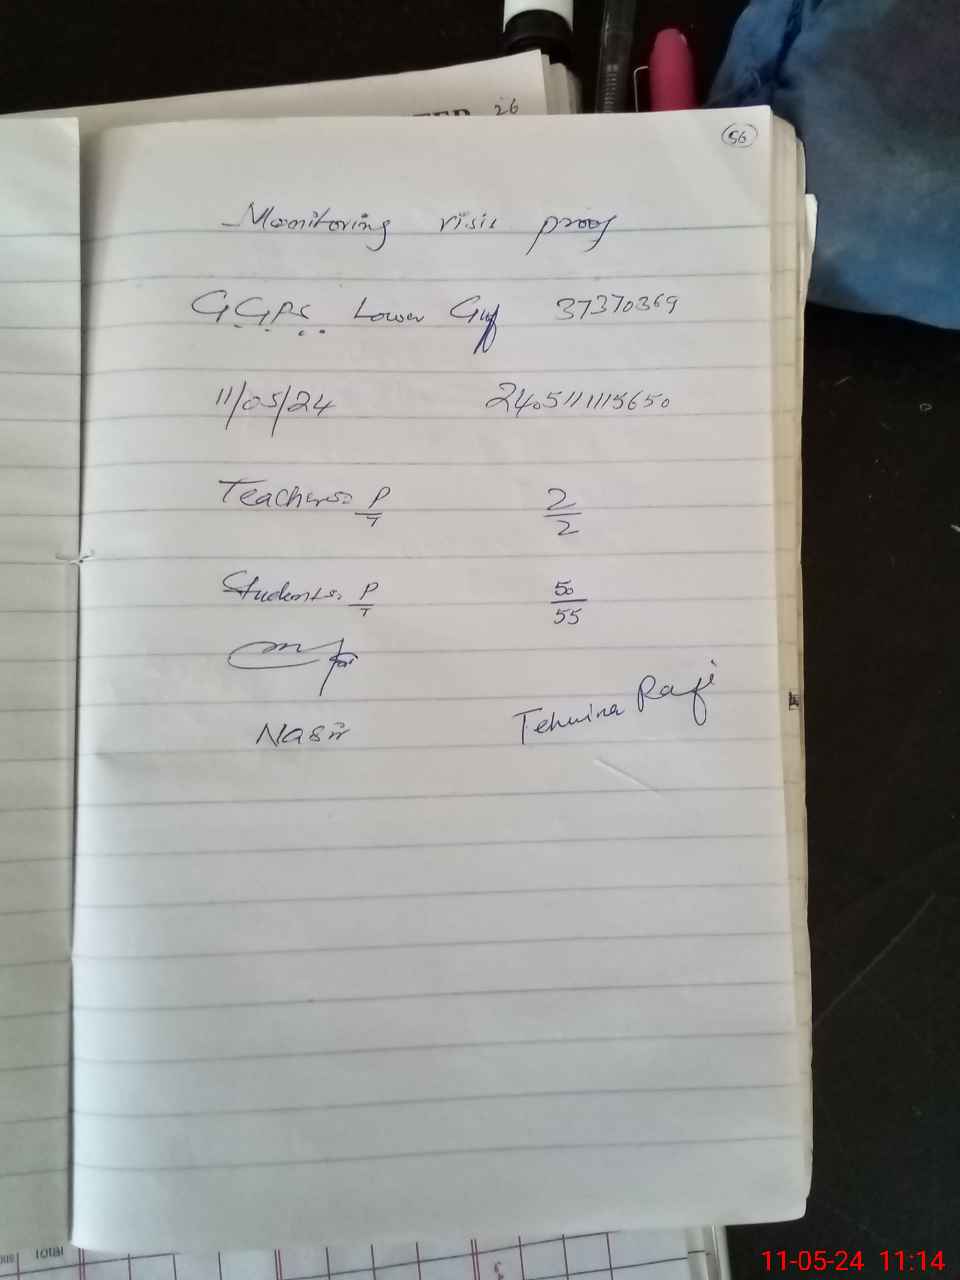 26
56
Monitoring visit proof
G.G.P.S. Lower 37370369
11/05/24 2405111115650
Teachers: P/T 2/2
Students: P/T 50/55
Nasir Tehmina Rafi
Total
11-05-24 11:14